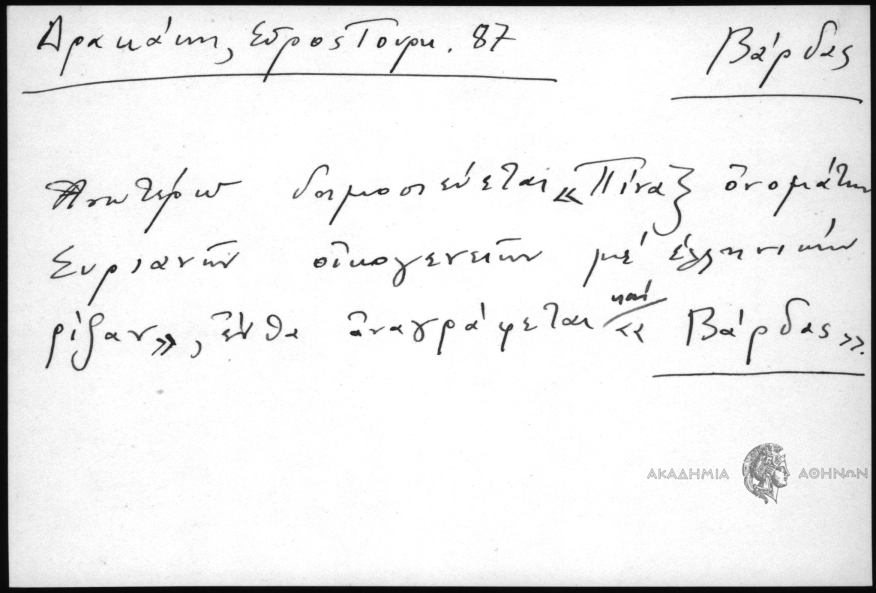 Δρακάκη, Σῦρος Τουρκ. 87
Βάρδας
Ἀνωτέρω δημοσιεύεται «Πίναξ ὀνομάτων
Συριανῶν οἰκογενειῶν μέ ἑλληνικήν
ρίζαν», ἔνθα ἀναγράφεται καί « Βάρδας ».
ΑΚΑΔΗΜΙΑ ΑΘΗΝΩΝ